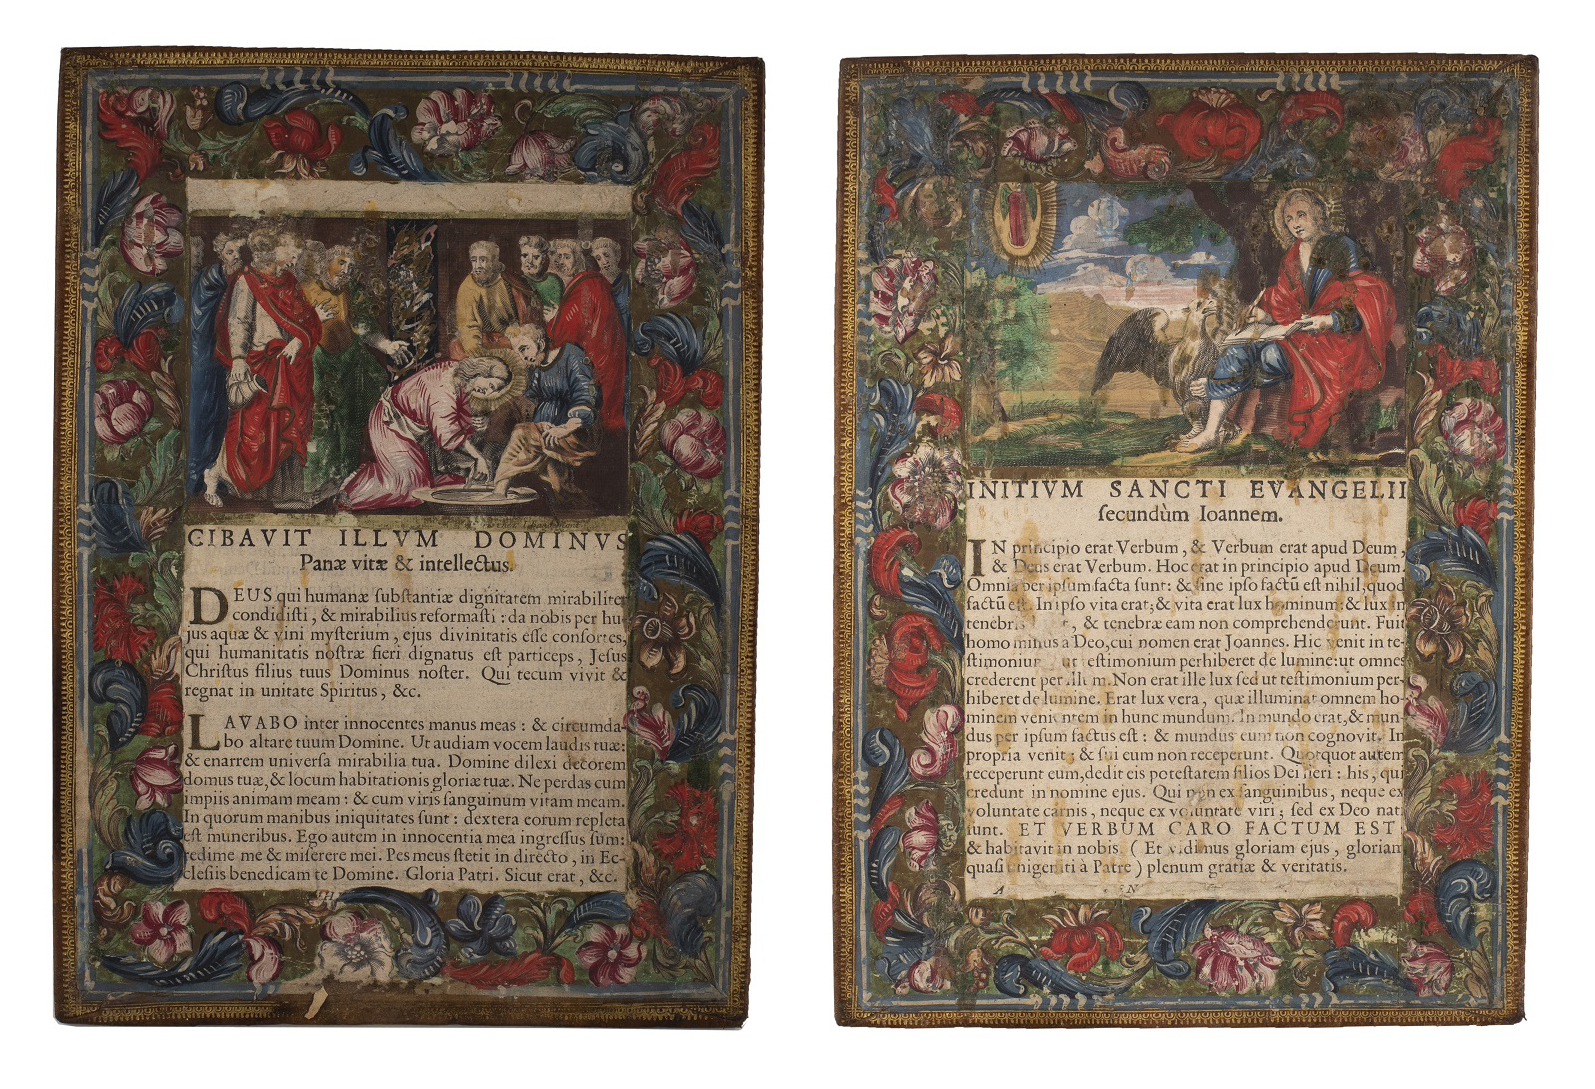 CIBAVIT ILLVM DOMINVS
Panæ vitæ & intellectus.
DEUS qui humanæ substantiæ dignitatem mirabiliter
condidisti, & mirabilius reformasti : da nobis per hu
jus aquæ & vini mysterium, ejus divinitatis esse consortes,
qui humanitatis nostræ fieri dignatus est particeps, Jesus
Christus filius tuus Dominus noster. Qui tecum vivit &
regnat in unitate Spiritus, &c.
LAVABO inter innocentes manus meas : & circumda-
bo altare tuum Domine. Ut audiam vocem laudis tuæ:
& enarrem universa mirabilia tua. Domine dilexi decorem
domus tuæ, & locum habitationis gloriæ tuæ. Ne perdas cum
impiis animam meam : & cum viris sanguinum vitam meam.
In quorum manibus iniquitates sunt : dextera eorum repleta
est muneribus. Ego autem in innocentia mea ingressus sum:
redime me & miserere mei. Pes meus stetit in directo, in Ec-
clesiis benedicam te Domine. Gloria Patri. Sicut erat, &c.
H
INITIVM SANCTI EVANGELII
secundùm Ioannem.
IN principio erat Verbum, & Verbum erat apud Deum,
& Deus erat Verbum. Hoc erat in principio apud Deum.
Omnia per ipsum facta sunt: & sine ipso factũ est nihil, quod
factũ est. In ipso vita erat; & vita erat lux hominum: & lux in
, & tenebræ eam non comprehenderunt. Fuit
homo missus a Deo, cui nomen erat Joannes. Hic venit in te-
ut testimonium perhiberet de lumine: ut omnes
crederent per Non erat ille lux sed ut testimonium per-
hiberet de lumine. Erat lux vera, quæ illuminat omnem ho-
minem venientem in hunc mundum. In mundo erat, & mun-
dus per ipsum factus est : & mundus eum non cognovit. In
propria venit, & sui eum non receperunt. Quotquot autem
receperunt eum, dedit eis potestatem filios Dei fieri : his, qui
credunt in nomine ejus. Qui non ex sanguinibus, neque ex
voluntate carnis, neque ex voluntate viri ; sed ex Deo nati
sunt. ET VERBUM CARO FACTUM EST,
& habitavit in nobis. ( Et vidimus gloriam ejus, gloriam
quasi unigeniti à Patre ) plenum gratiæ & veritatis.
A N